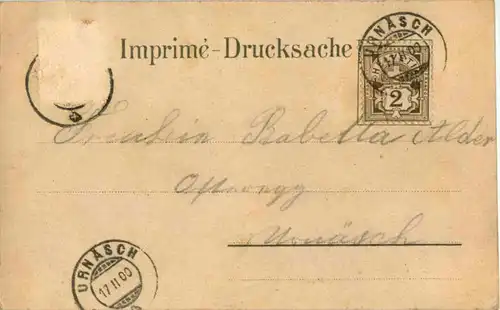 Imprimé - Drucksache
URNÄSCH
HELVETIA
2
Fräulein Babetta Alder
Urnäsch
URNÄSCH
17 II 00